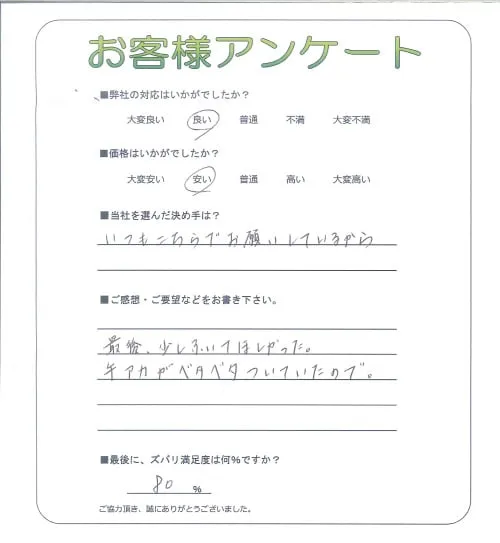 お客様アンケート
■弊社の対応はいかがでしたか？
大変良い 良い 普通 不満 大変不満
■価格はいかがでしたか？
大変安い 安い 普通 高い 大変高い
■当社を選んだ決め手は？
いつもこちらでお願いしているから
■ご感想・ご要望などをお書き下さい。
最後、少しふいてほしかった。
手アカがベタベタついていたので。
■最後に、ズバリ満足度は何%ですか？
80 %
ご協力頂き、誠にありがとうございました。